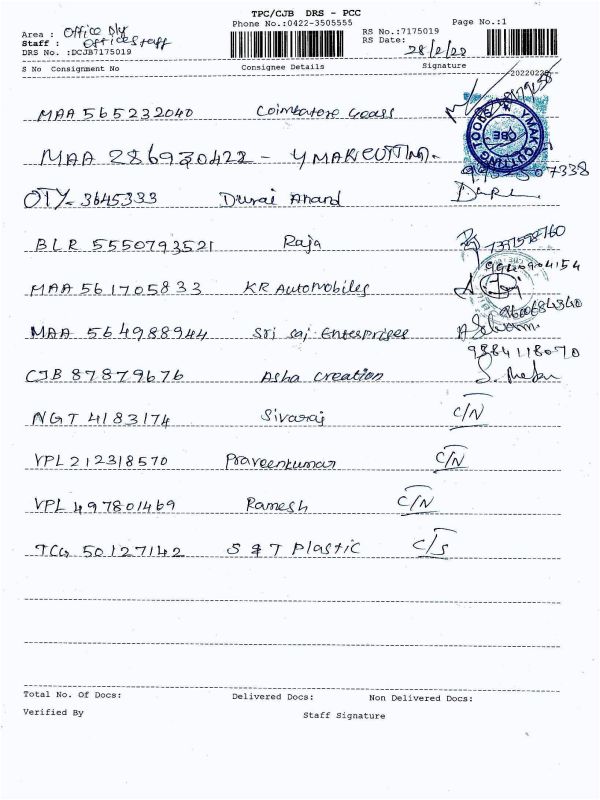 TPC/CJB DRS - PCC
Phone No.:0422-3505555
Page No.:1
Area : Office Dly
RS No.:7175019
Staff : Office staff
RS Date: 28/2/22
DRS No. :DCJB7175019
S No Consignment No Consignee Details Signature
MAA 565232040 Coimbatore
MAA 286930422 - YMAK CUTTING.
OTY- 3645333 Durai Anand
BLR 5550793521 Raja
MAA 561705833 KR Automobiles 9940904154
MAA 564988944 Sri Sai Enterprises
CJB 87879676 Asha Creation 9384118070
NGT 4183174 Sivaraj C/N
VPL 212318570 Praveenkumar C/N
VPL 497801469 Ramesh C/N
TCG 50127142 S & T Plastic C/S
Total No. Of Docs: Delivered Docs: Non Delivered Docs:
Verified By Staff Signature